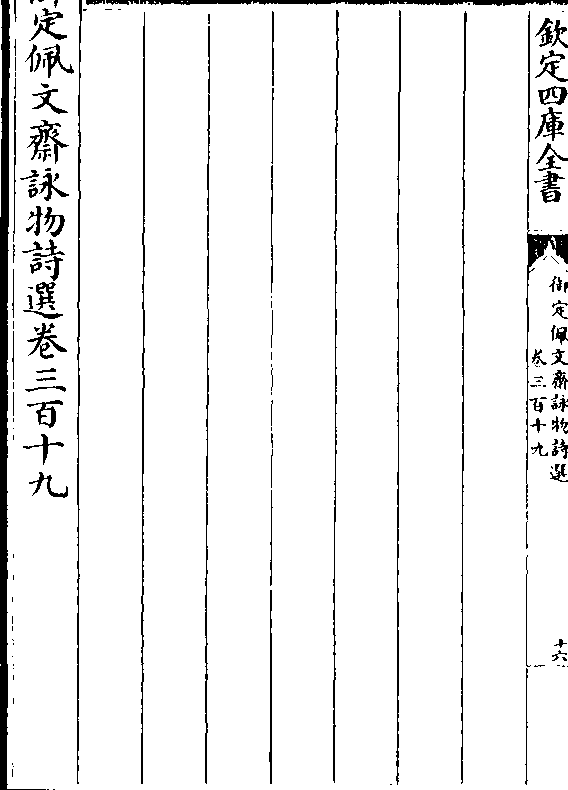 欽定四庫全書
御定佩文齋詠物詩選
卷三百十九
十六
御定佩文齋詠物詩選卷三百十九